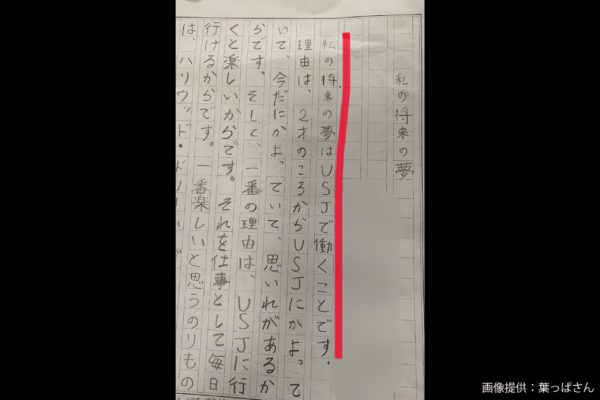 私の将来の夢
私の将来の夢はUSJで働くことです。
理由は、2才のころからUSJにかよって
いて、今だにかよっていて、思いれがあるか
らです。そして、一番の理由は、USJに行
くと楽しいからです。それを仕事として毎日
行けるからです。一番楽しいと思うのりもの
は、ハリウッド・ドリ
画像提供：葉っぱさん